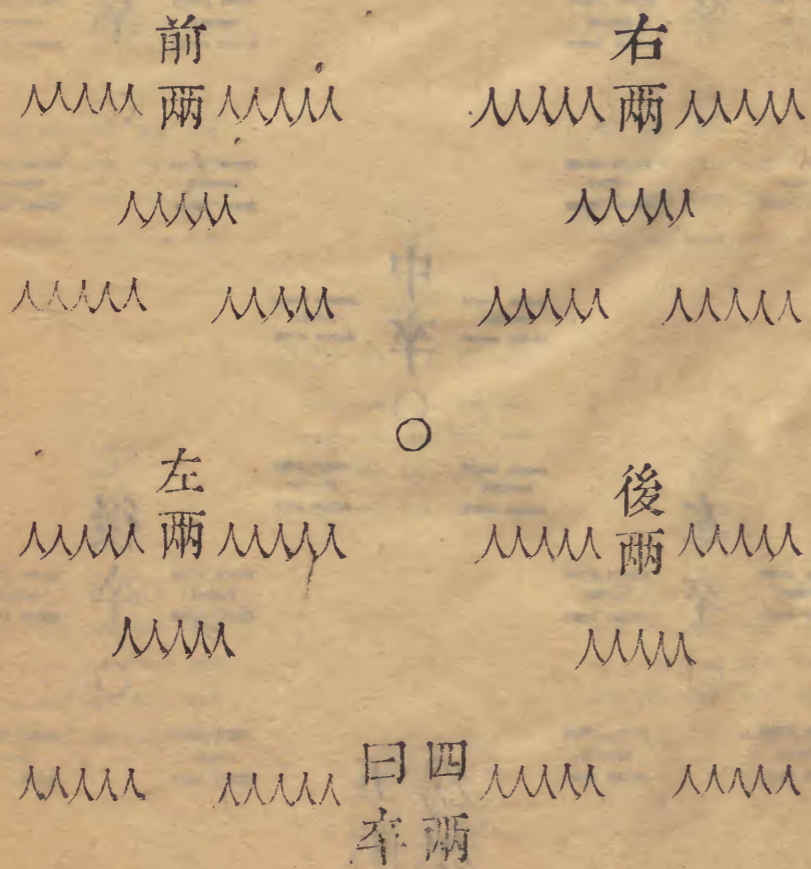 右
人人人人人兩人人人人人
人人人人人
人人人人人 人人人人人
前
人人人人人兩人人人人人
人人人人人
人人人人人 人人人人人
後
人人人人人兩人人人人人
人人人人人
人人人人人 人人人人人
左
人人人人人兩人人人人人
人人人人人
人人人人人 人人人人人
四兩
曰卒